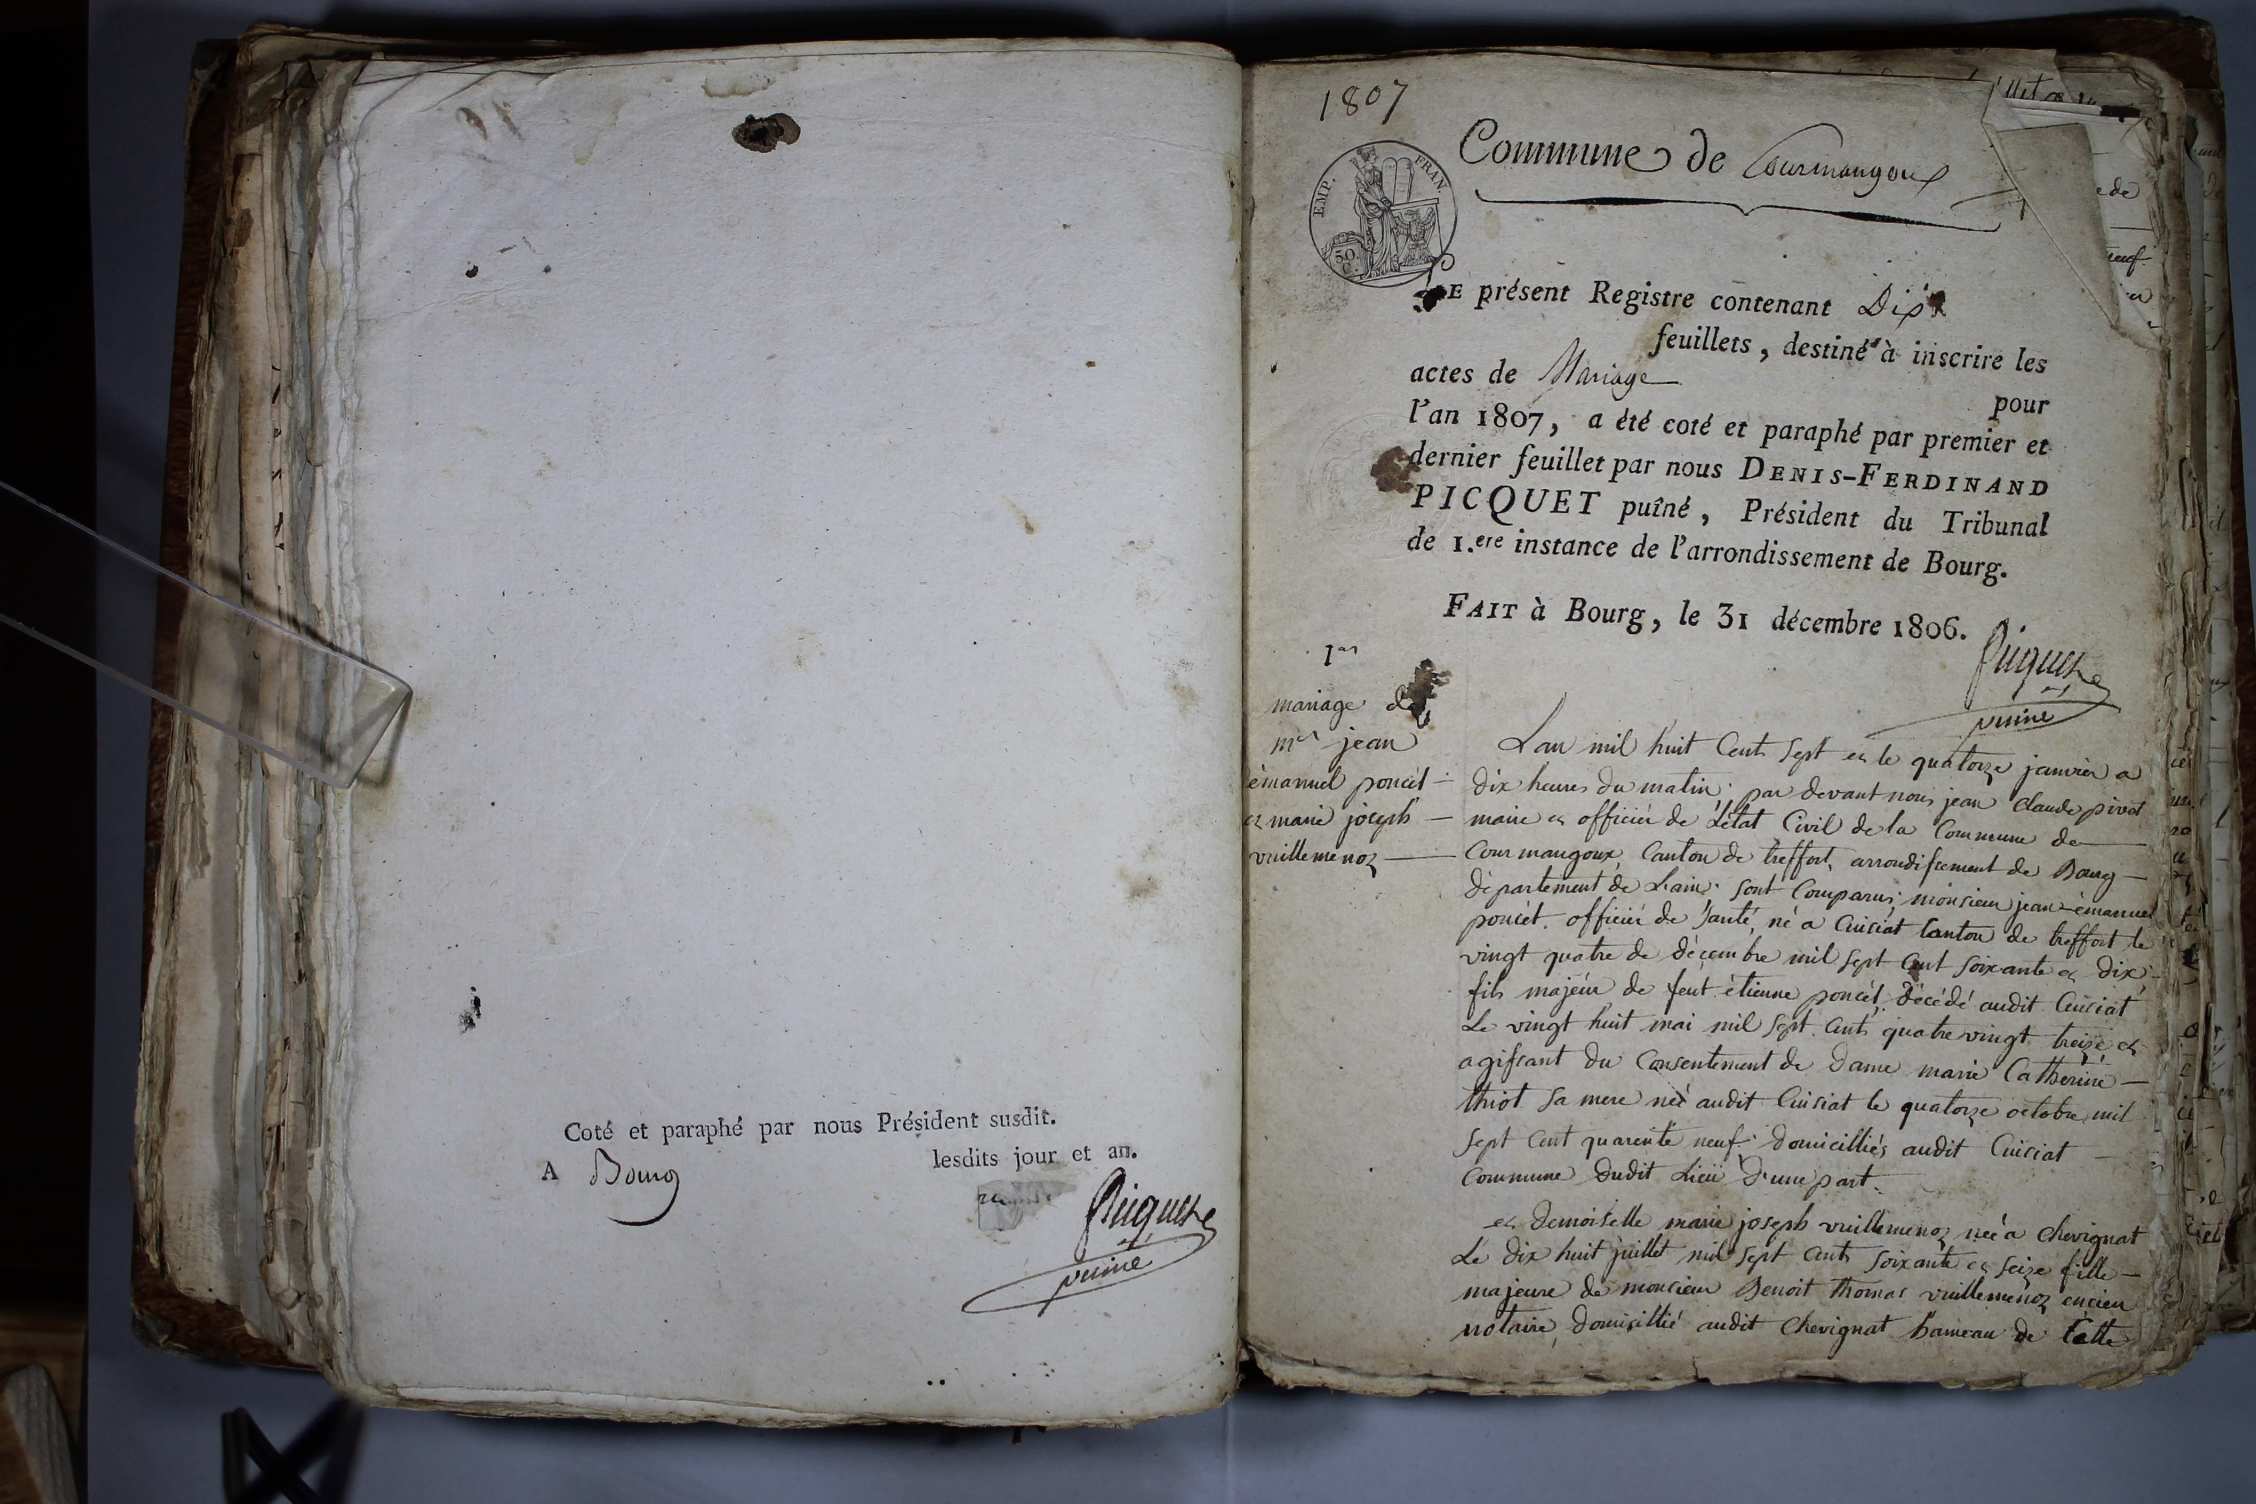 Coté et paraphé par nous Président susdit.
A Bourg lesdits jour et an.
Picquet
puiné
1807
Commune de Courmangoux
EMP. FRAN.
50 C.
LE présent Registre contenant Dix
feuillets, destiné à inscrire les
actes de Mariage
pour
l'an 1807, a été coté et paraphé par premier et
dernier feuillet par nous DENIS-FERDINAND
PICQUET puîné, Président du Tribunal
de 1.ere instance de l'arrondissement de Bourg.
FAIT à Bourg, le 31 décembre 1806.
Picquet
puiné
1er
mariage de
mr jean
émanuel poncét
et marie joseph
vuillemenoz
L'an mil huit Cent Sept et le quatorze janvier a
dix heures du matin par devant nous jean Claude pivot
maire et officiér de L'état Civil de la Commune de
Courmangoux, Canton de treffort, arrondissement de Bourg
département de L'ain; Sont Comparus monsieur jean émanuel
poncét officiér de Santé, né a Cuisiat Canton de treffort le
vingt quatre de décembre mil Sept Cent Soixante et dix
fils majéur de feut étienne poncét, décédé audit Cuisiat
Le vingt huit mai mil Sept Cent quatre vingt treize et
agissant du Consentement de Dame marie Catherine
thiot Sa mere née audit Cuisiat le quatorze octobre mil
Sept Cent quarente neuf domicilliés audit Cuisiat
Commune dudit Lieu D'une part.
et demoiselle marie joseph vuillemenoz née a chevignat
Le dix huit juillet mil Sept Cent Soixante et Seize fille
majeure de monsieur Benoit thomas vuillemenoz encien
notaire, domisillié audit Chevignat hameau de Cette